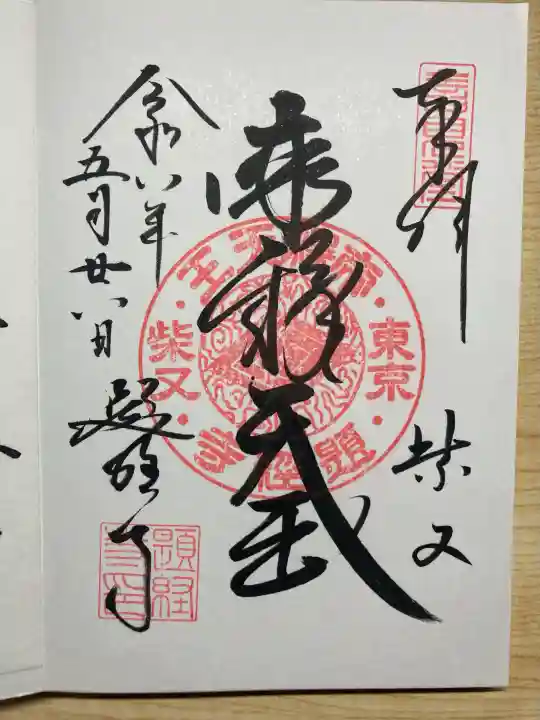 奉拝
柴又
帝釈天王
令和八年
五月廿八日
題経寺
東京
柴又
帝釈天王
題経寺